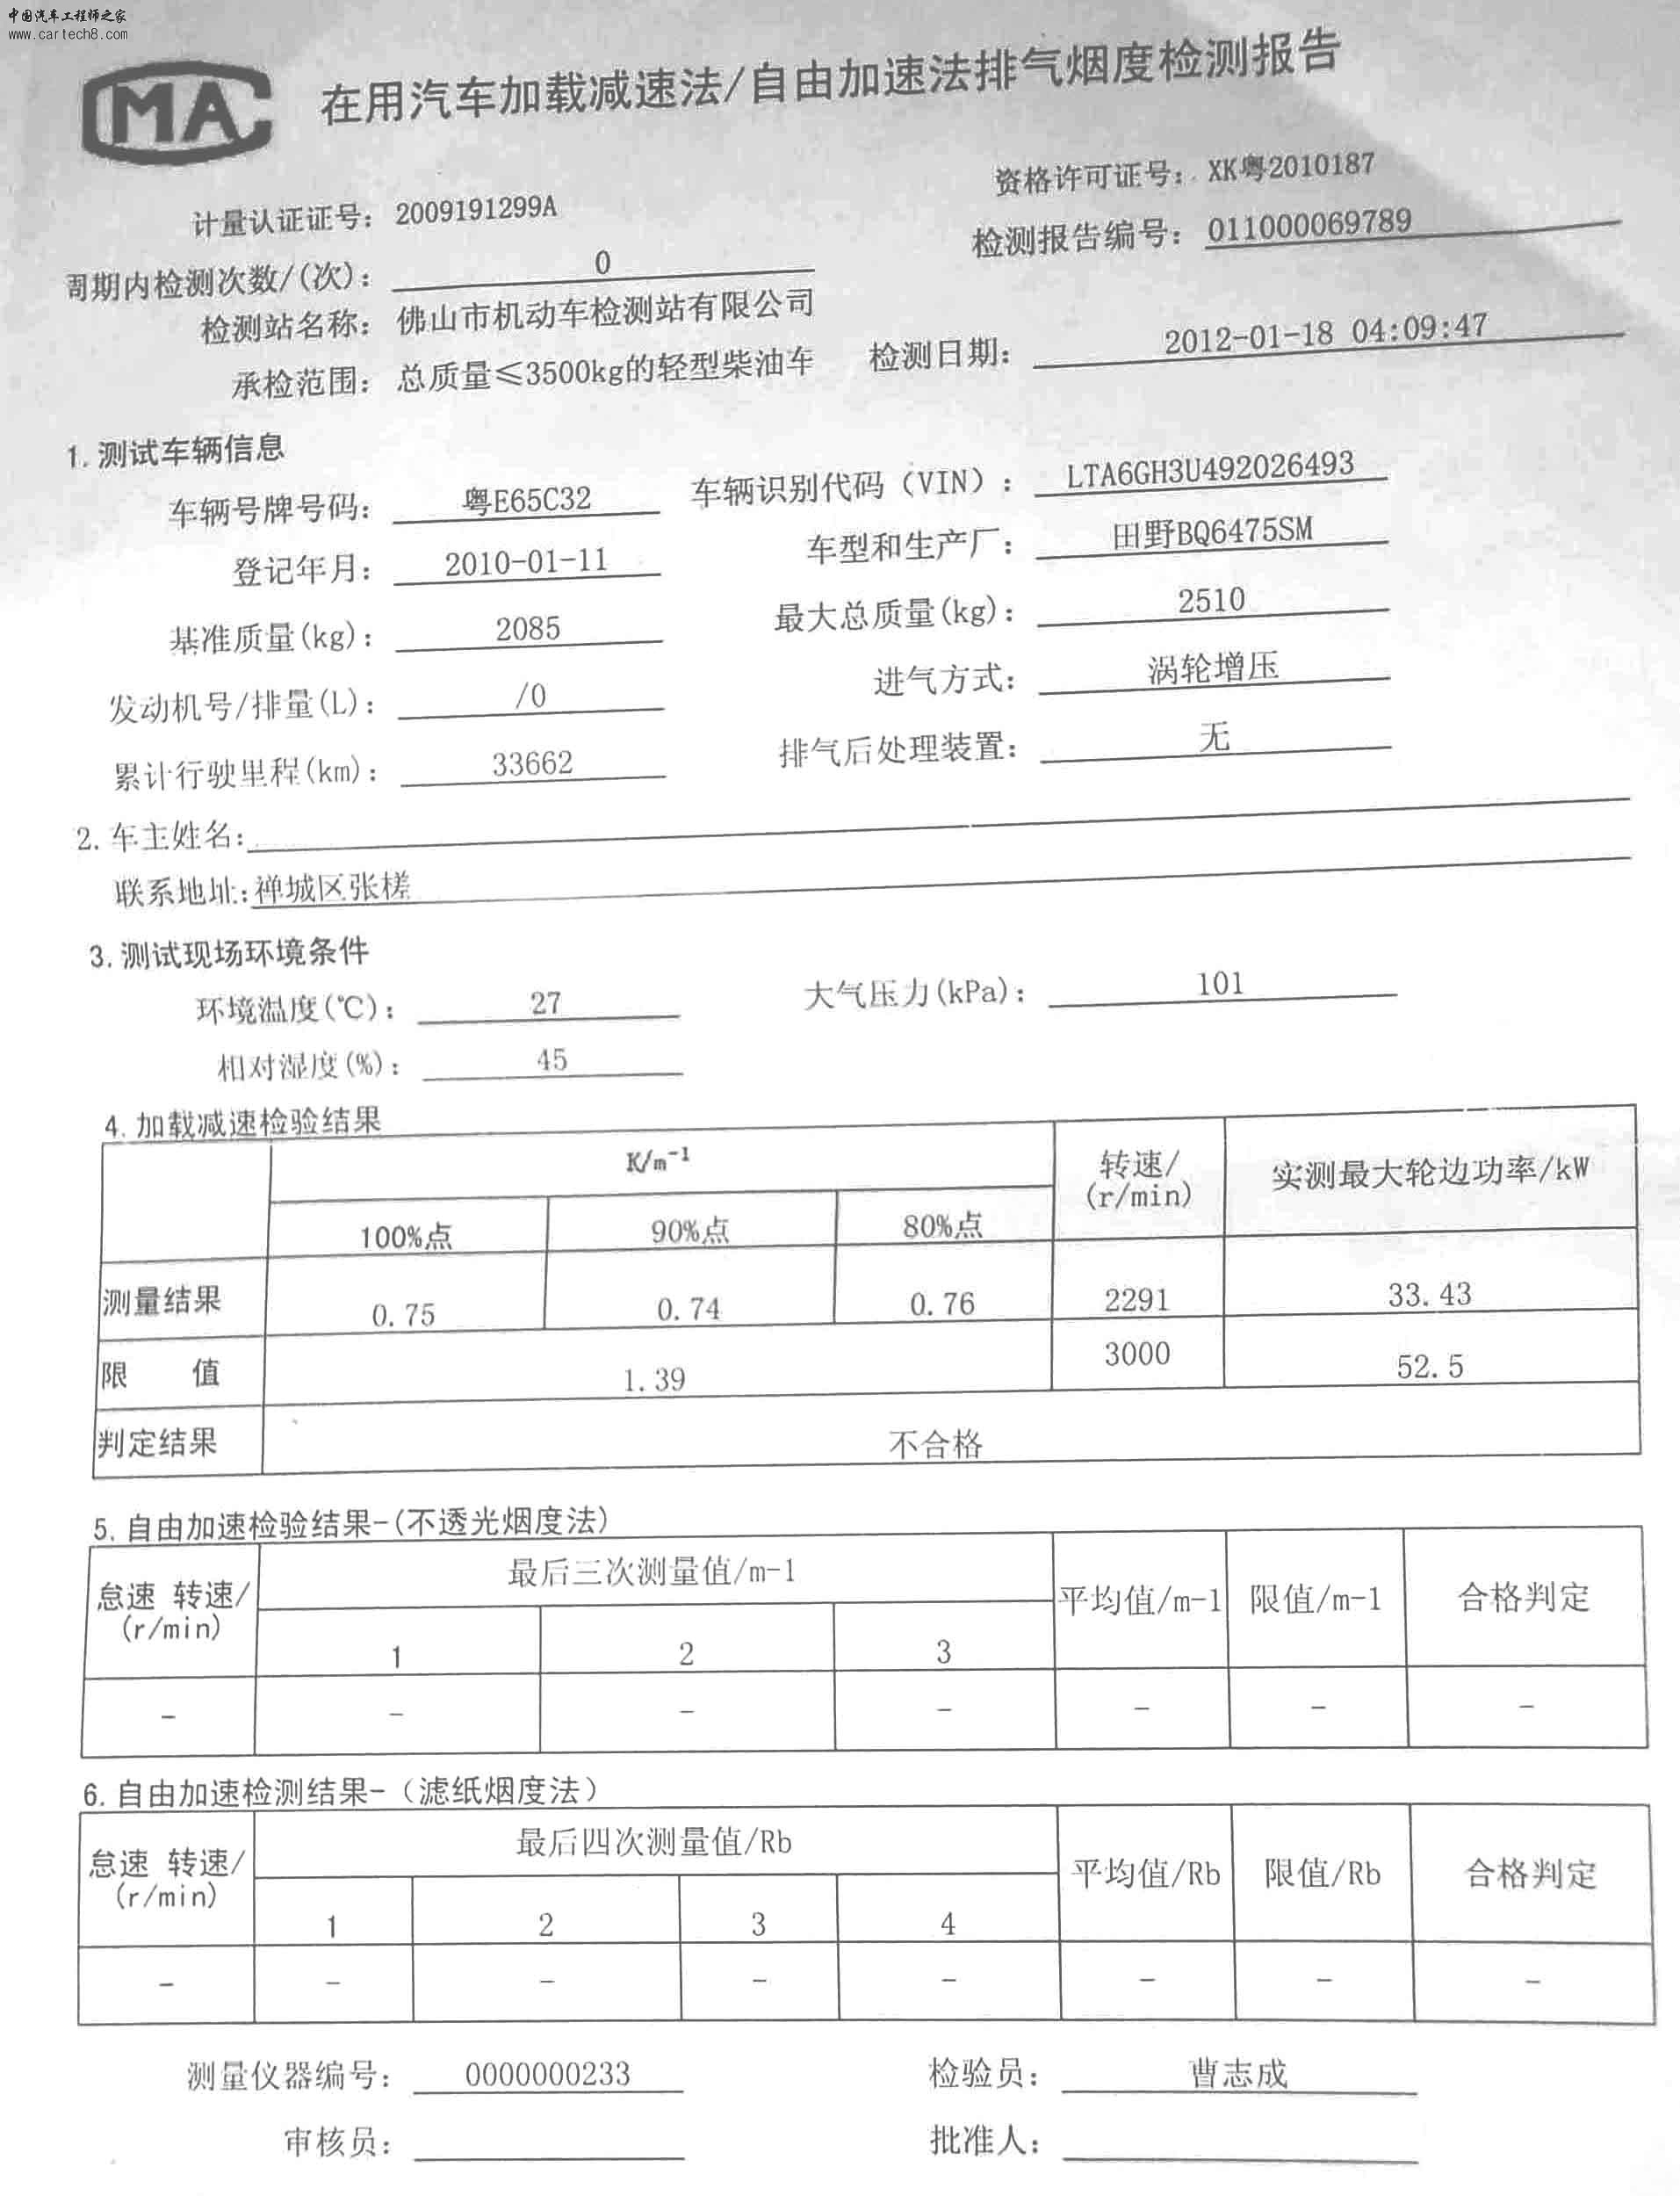 中国汽车工程师之家
www.cartech8.com
CMA
在用汽车加载减速法/自由加速法排气烟度检测报告
资格许可证号： XK粤2010187
计量认证证号： 2009191299A
检测报告编号： 011000069789
周期内检测次数/(次)： 0
检测站名称： 佛山市机动车检测站有限公司
承检范围： 总质量≤3500kg的轻型柴油车 检测日期： 2012-01-18 04:09:47
1.测试车辆信息
车辆号牌号码： 粤E65C32 车辆识别代码（VIN）： LTA6GH3U492026493
登记年月： 2010-01-11 车型和生产厂： 田野BQ6475SM
基准质量(kg)： 2085 最大总质量(kg)： 2510
发动机号/排量(L)： /0 进气方式： 涡轮增压
累计行驶里程(km)： 33662 排气后处理装置： 无
2.车主姓名：
联系地址：禅城区张槎
3.测试现场环境条件
环境温度(℃)： 27 大气压力(kPa)： 101
相对湿度(%)： 45
4.加载减速检验结果
K/m-1 转速/(r/min) 实测最大轮边功率/kW
100%点 90%点 80%点
测量结果 0.75 0.74 0.76 2291 33.43
限 值 1.39 3000 52.5
判定结果 不合格
5.自由加速检验结果-(不透光烟度法)
怠速 转速/(r/min) 最后三次测量值/m-1 平均值/m-1 限值/m-1 合格判定
1 2 3
- - - - - - -
6.自由加速检测结果-（滤纸烟度法）
怠速 转速/(r/min) 最后四次测量值/Rb 平均值/Rb 限值/Rb 合格判定
1 2 3 4
- - - - - - - -
测量仪器编号： 0000000233 检验员： 曹志成
审核员： 批准人：